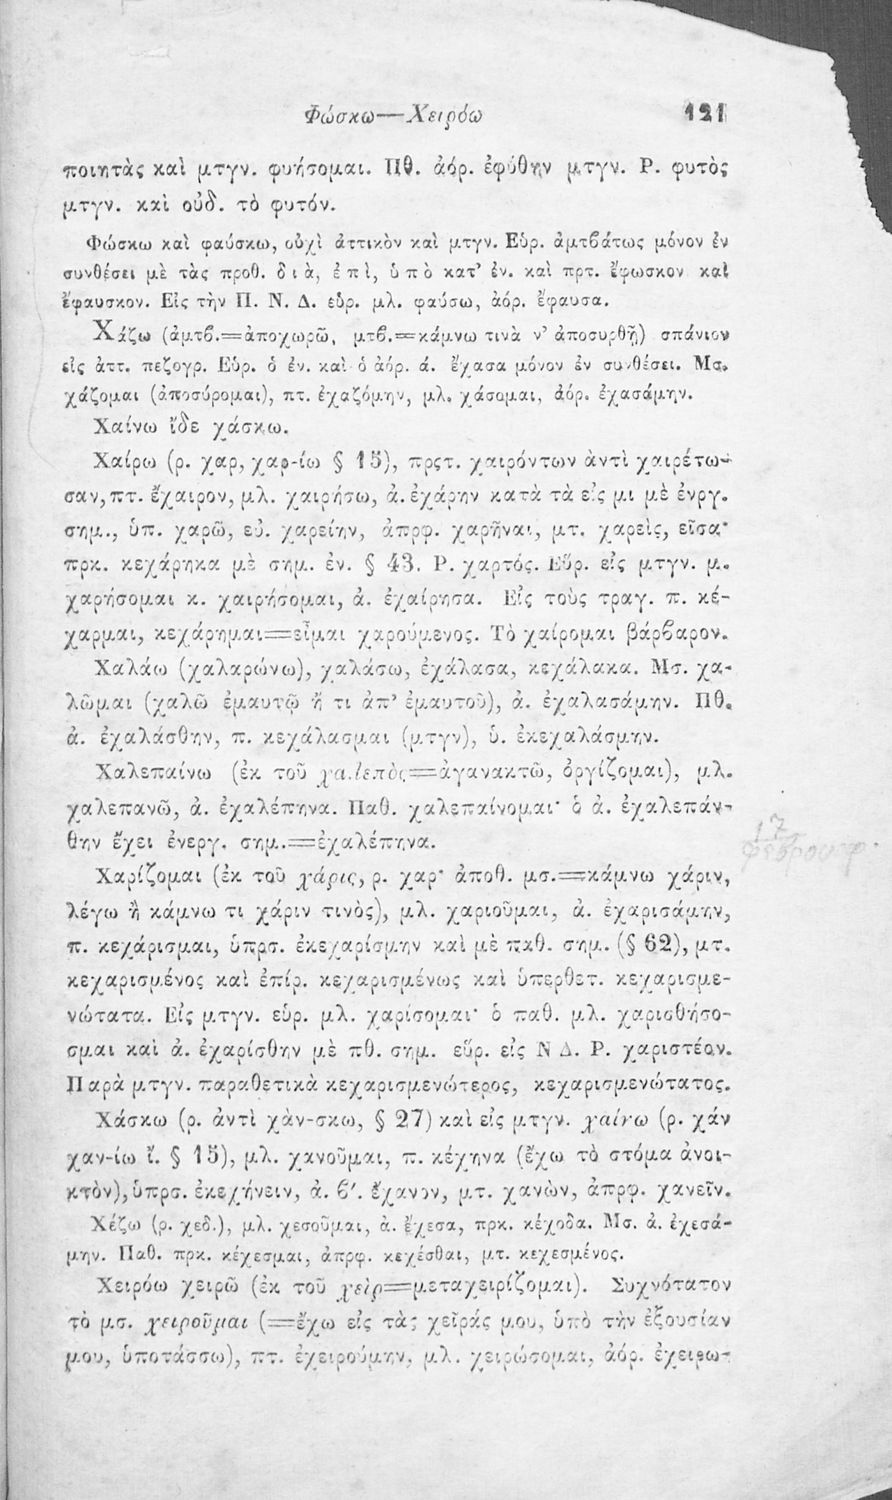 Φώσκω—Χειρόω 121
ποιητὰς καὶ μτγν. φυήσομαι. Πθ. ἀόρ. ἐφύθην μτγν. Ρ. φυτὸς
μτγν. καὶ οὐδ. τὸ φυτόν.
Φώσκω καὶ φαύσκω, οὐχὶ ἀττικὸν καὶ μτγν. Εὑρ. ἀμτβάτως μόνον ἐν
συνθέσει μὲ τὰς προθ. διὰ, ἐπὶ, ὑπὸ κατ' ἐν. καὶ πρτ. ἔφωσκον καὶ
ἔφαυσκον. Εἰς τὴν Π. Ν. Δ. εὑρ. μλ. φαύσω, ἀόρ. ἔφαυσα.
Χάζω (ἀμτβ.=ἀποχωρῶ, μτβ.=κάμνω τινὰ ν' ἀποσυρθῇ) σπάνιον
εἰς ἀττ. πεζογρ. Εὑρ. ὁ ἐν. καὶ ὁ ἀόρ. ά. ἔχασα μόνον ἐν συνθέσει. Μσ.
χάζομαι (ἀποσύρομαι), πτ. ἐχαζόμην, μλ. χάσομαι, ἀόρ. ἐχασάμην.
Χαίνω ἴδε χάσκω.
Χαίρω (ρ. χαρ, χαρ-ίω § 15), πρςτ. χαιρόντων ἀντὶ χαιρέτω-
σαν, πτ. ἔχαιρον, μλ. χαιρήσω, ἀ. ἐχάρην κατὰ τὰ εἰς μι μὲ ἐνργ.
σημ., ὑπ. χαρῶ, εὐ. χαρείην, ἀπρφ. χαρῆναι, μτ. χαρεὶς, εῖσα·
πρκ. κεχάρηκα μὲ σημ. ἐν. § 43. Ρ. χαρτός. Εὕρ. εἰς μτγν. μ.
χαρήσομαι κ. χαιρήσομαι, ἀ. ἐχαίρησα. Εἰς τοὺς τραγ. π. κέ-
χαρμαι, κεχάρημαι=εἶμαι χαρούμενος. Τὸ χαίρομαι βάρβαρον.
Χαλάω (χαλαρώνω), χαλάσω, ἐχάλασα, κεχάλακα. Μσ. χα-
λῶμαι (χαλῶ ἐμαυτῷ ἤ τι ἀπ' ἐμαυτοῦ), ἀ. ἐχαλασάμην. Πθ.
ἀ. ἐχαλάσθην, π. κεχάλασμαι (μτγν), ὑ. ἐκεχαλάσμην.
Χαλεπαίνω (ἐκ τοῦ χαλεπὸς=ἀγανακτῶ, ὀργίζομαι), μλ.
χαλεπανῶ, ἀ. ἐχαλέπηνα. Παθ. χαλεπαίνομαι· ὁ ἀ. ἐχαλεπάν-
θην ἔχει ἐνεργ. σημ.=ἐχαλέπηνα.
17
φεβρουαρ.
Χαρίζομαι (ἐκ τοῦ χάρις, ρ. χαρ· ἀποθ. μσ.=κάμνω χάριν,
λέγω ἢ κάμνω τι χάριν τινὸς), μλ. χαριοῦμαι, ἀ. ἐχαρισάμην,
π. κεχάρισμαι, ὑπρσ. ἐκεχαρίσμην καὶ μὲ παθ. σημ. (§ 62), μτ.
κεχαρισμένος καὶ ἐπίρ. κεχαρισμένως καὶ ὑπερθετ. κεχαρισμε-
νώτατα. Εἰς μτγν. εὑρ. μλ. χαρίσομαι· ὁ παθ. μλ. χαρισθήσο-
σμαι καὶ ἀ. ἐχαρίσθην μὲ πθ. σημ. εὕρ. εἰς Ν Δ. Ρ. χαριστέον.
Παρὰ μτγν. παραθετικὰ κεχαρισμενώτερος, κεχαρισμενώτατος.
Χάσκω (ρ. ἀντὶ χὰν-σκω, § 27) καὶ εἰς μτγν. χαίνω (ρ. χάν
χαν-ίω ἴ. § 15), μλ. χανοῦμαι, π. κέχηνα (ἔχω τὸ στόμα ἀνοι-
κτὸν), ὑπρσ. ἐκεχήνειν, ἀ. β'. ἔχανον, μτ. χανὼν, ἀπρφ. χανεῖν.
Χέζω (ρ. χεδ.), μλ. χεσοῦμαι, ἀ. ἔχεσα, πρκ. κέχοδα. Μσ. ἀ. ἐχεσά-
μην. Παθ. πρκ. κέχεσμαι, ἀπρφ. κεχέσθαι, μτ. κεχεσμένος.
Χειρόω χειρῶ (ἐκ τοῦ χεὶρ=μεταχειρίζομαι). Συχνότατον
τὸ μσ. χειροῦμαι (=ἔχω εἰς τὰς χεῖράς μου, ὑπὸ τὴν ἐξουσίαν
μου, ὑποτάσσω), πτ. ἐχειρούμην, μλ. χειρώσομαι, ἀόρ. ἐχειρω-